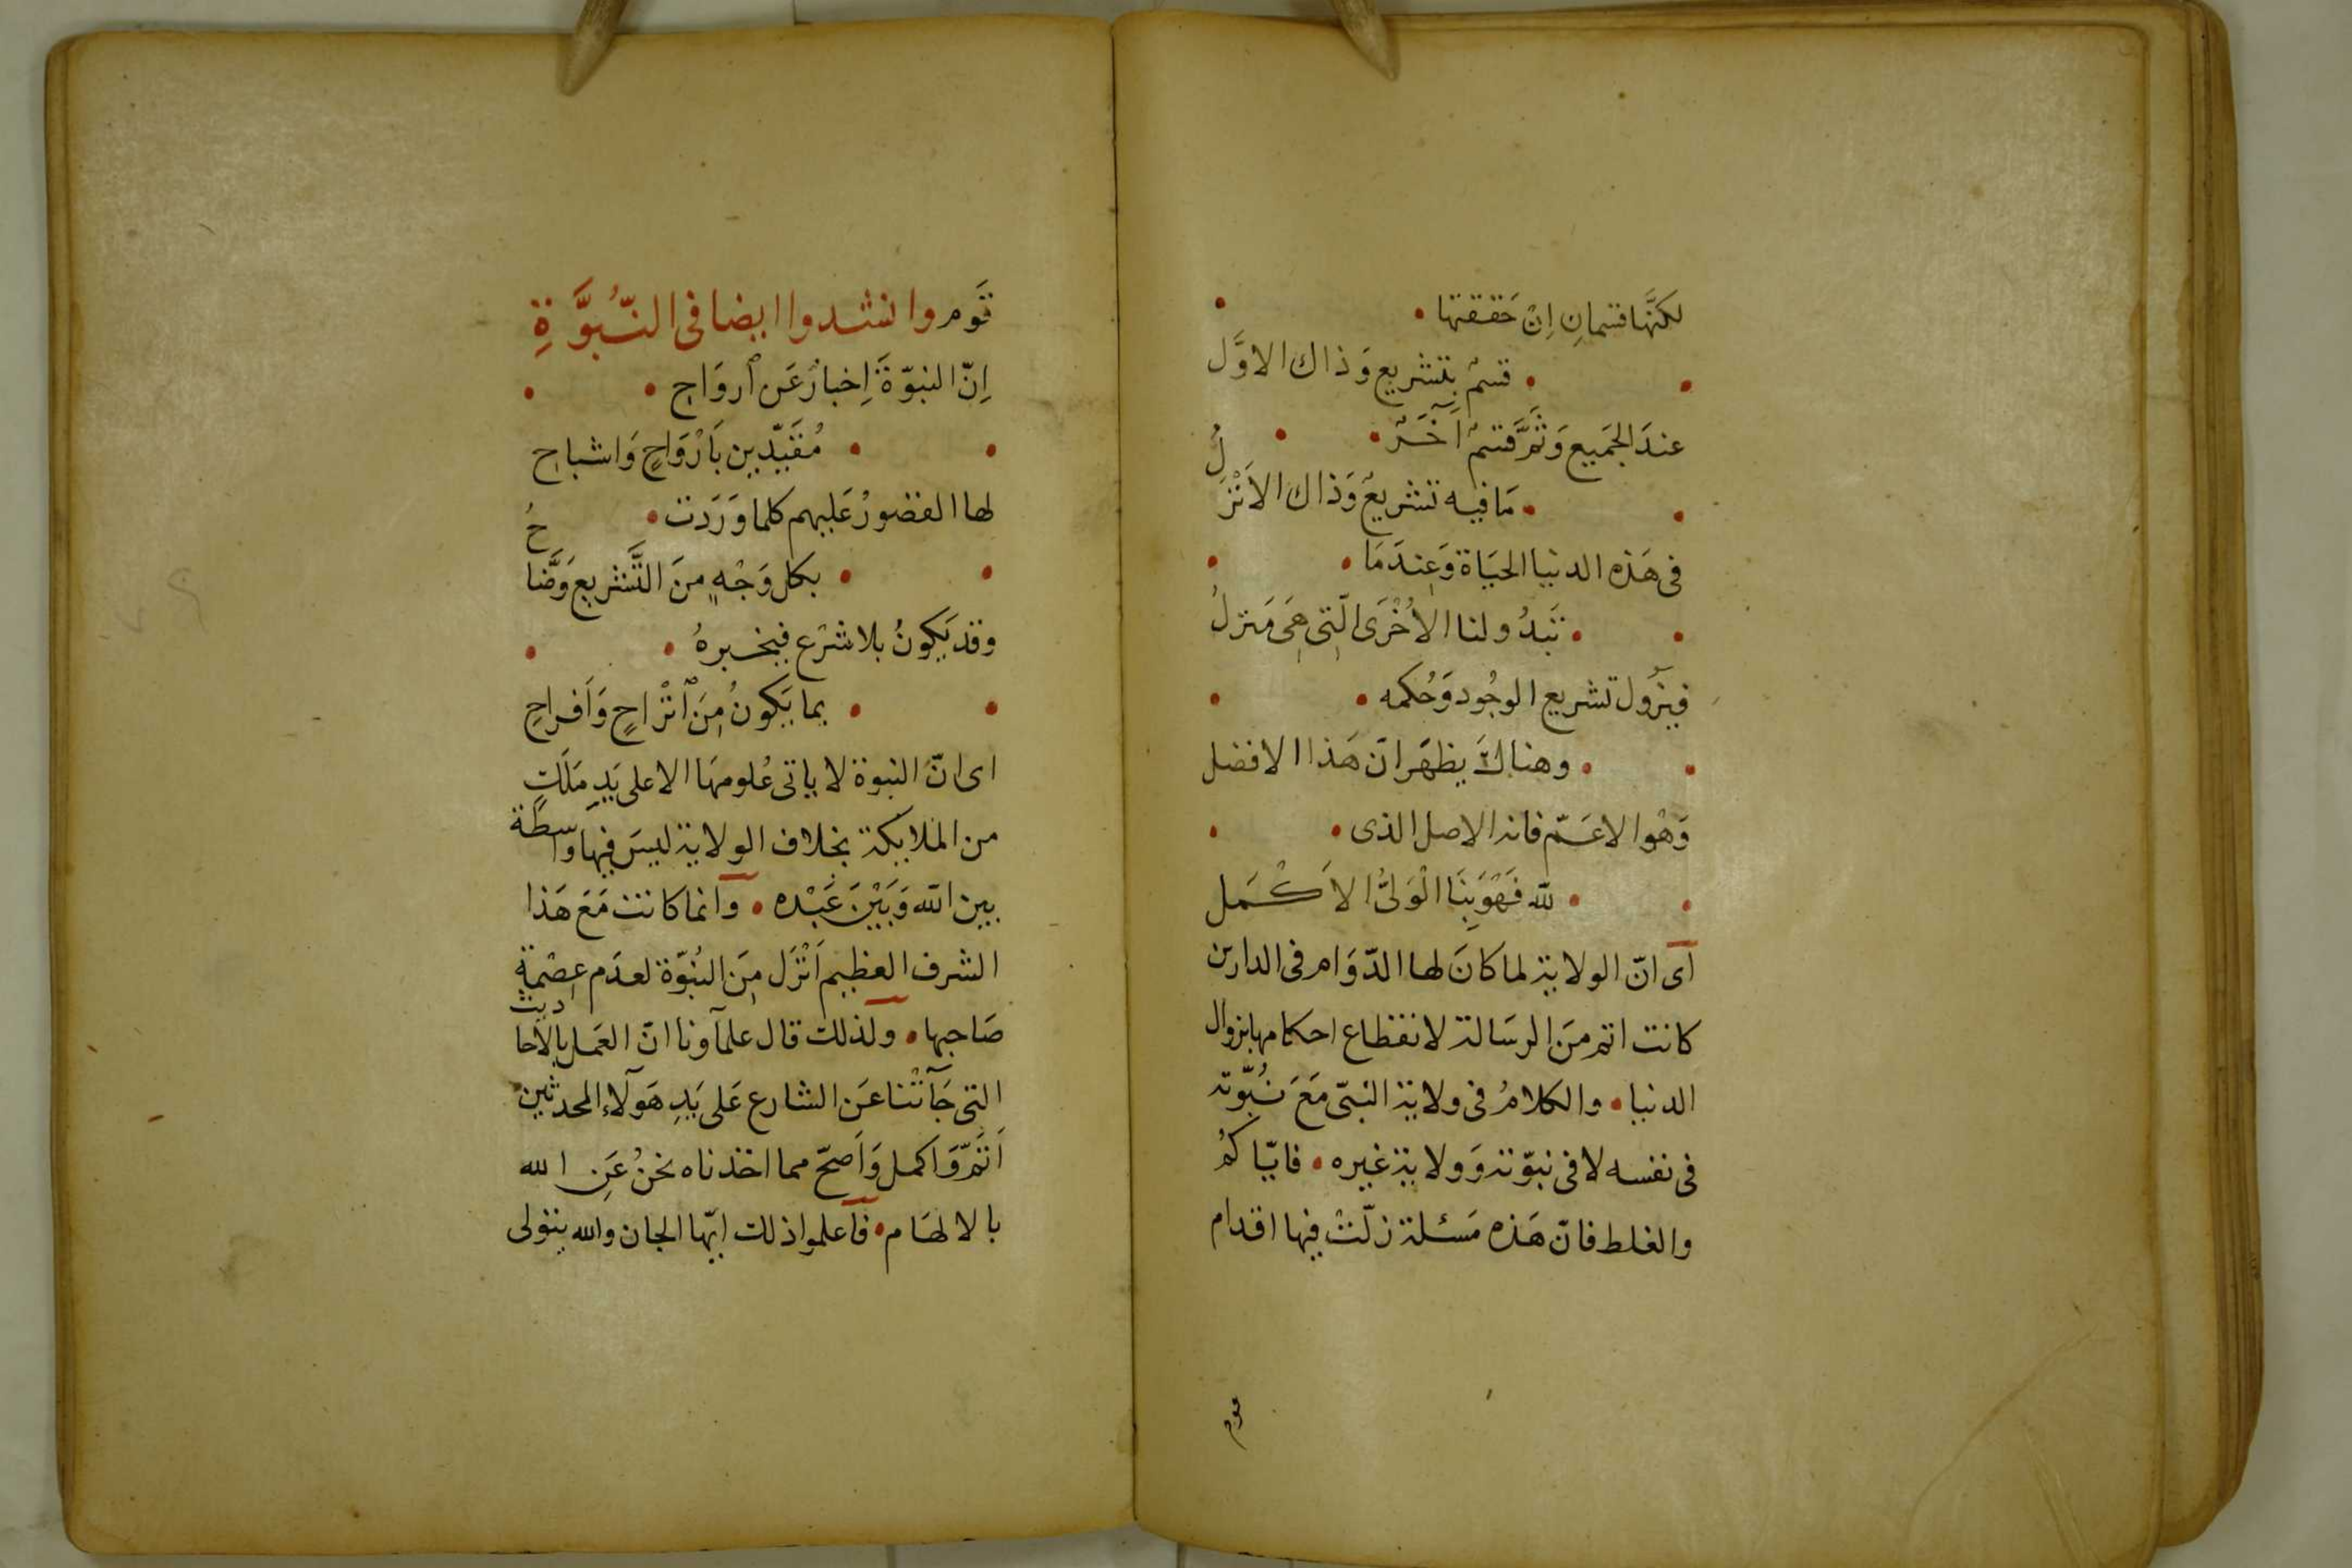 لكنَّها قسمانِ اِنْ حَققتها •
• قسمٌ بتشريع وَذاك الاوَّل
عندَ الجَميع وَثَمَّ قسمٌ آخَرٌ •
• مَا فيه تشريعٌ وَذاك الاَنْزَلُ
فى هَذه الدنيا الحيَاة وَعِندَمَا •
• تَبدُو لنا الاُخْرَى الّتِى هِىَ مَنزلُ
فيزُول تشريع الوجُود وَحُكمه •
• وهناكَ يظهَر انّ هَذا الافضل
وَهْوا الاعَمّ فانه الاصل الذى •
• لله فَهْوَ بِنَا الْوَلىُّ الاَكْمَل
اَى انّ الولاية لما كانَ لها الدّوَام فى الدارين
كانت اتم مِنَ الرسَالة لانقطاع احكامها بزوال
الدنيا • والكلامُ فى ولاية النبّى مَعَ نُبُوّته
فى نفسه لا فى نبوّته وَولاية غيره • فايّاكمُ
والغلط فانّ هَذه مَسئلة زلّتْ فيها اقدام
قوم
قَوم وانشدوا ايضا فى النّبُوَّةِ
اِنّ النبوّةَ اِخبارٌ عَن ارْوَاحٍ •
• مُقَيّدِين بَاَرْوَاحٍ وَاشباحِ
لها القصُورُ عَليهم كلما وَرَدت •
• بكل وَجْهٍ مِنَ التَّشريع وَضَّاحُ
وقد يَكونُ بلا شرْع فيخبرهُ •
• بما يَكونُ مِنَ اَتْرَاحٍ وَاَفراحِ
اى انّ النبوة لا ياتى عُلومهَا الا على يَدِ مَلَكٍ
من الملايكة بخلاف الولاية ليسَ فيهَا واسطَة
بين الله وَبَيْنَ عَبْده • وانما كانت مَعَ هَذا
الشرف العظيم اَنْزَل مِنَ النُبوّة لعدَم عِصْمةِ
صَاحبها • ولذلك قال علمآونا انّ العَمل بالاحاديث
التى جَآتْنا عَن الشارع عَلى يَدِ هَولآء المحدثين
اَتَمّ وَاَكمل وَاَصحّ مما اخذناه نحنُ عَنِ الله
بالالهَام • فاعلموا ذلك ايّها الجان والله يتولى